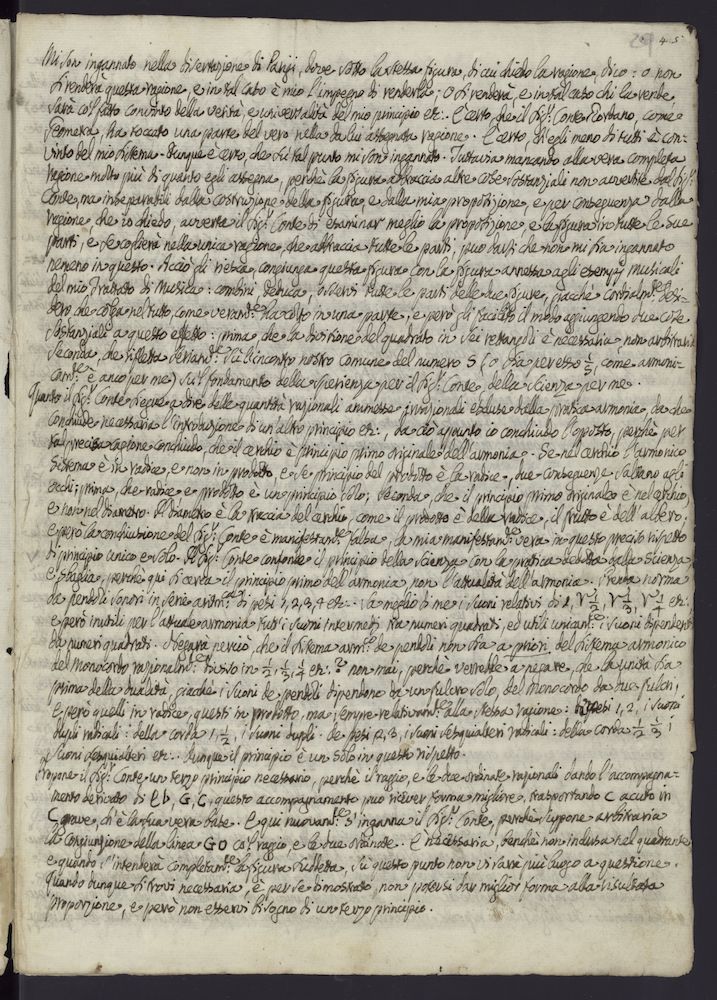 4 5
Mi son ingannato nella dissertazione di Parigi, dove sotto la stessa figura, di cui chiedo la ragione, dico: o non
si renderà questa ragione, e in tal caso è mio l'impegno di renderla: o si renderà, e in tal caso chi la rende
sarà col fatto convinto della verità, e universalità del mio principio etc. È certo, che il Sig.r Conte Riccati, come
Geometra, ha toccato una parte del vero nella da lui assegnata ragione. È certo, ch'egli meno di tutti è con-
vinto del mio sistema. Dunque è certo, che su tal punto mi son ingannato. Tuttavia mancando alla vera completa
ragione molto più di quanto egli assegna, perchè la figura abbraccia altre cose sostanziali non avvertite dal Sig.r
Conte, ma inseparabili dalla costruzione della figura, e dalla mia proposizione, e per conseguenza dalla
ragione, che io chiedo, avverta il Sig.r Conte di esaminar meglio la proposizione, e la figura in tutte le sue
parti, e se coglierà nella unica ragione, che abbraccia tutte le parti, può darsi che non mi sia ingannato
nemeno in questo. Acciò gli riesca, congiunga questa figura con la figura annessa agli esempj musicali
del mio Trattato di Musica: combini, deduca, osservi tutte le parti delle due figure, giacchè cordialm.te desi-
dero che colga nel tutto, come veram.te ha colto in una parte, e però gli facilito il modo aggiungendo due cose
sostanziali a questo effetto: prima, che la divisione del quadrato in sei rettangoli è necessaria, non arbitraria
seconda, che rifletta seriam.te sul incontro nostro comune del numero 5 (o sia per esso 1/5, come armoni-
cam.te è anco per me) sul fondamento della sperienza per il Sig.r Conte, della scienza per me.
Quanto il Sig.r Conte segue a dire delle quantità razionali ammesse, irrazionali escluse dalla pratica armonia, da che
conchiude necessaria l'introduzione di un altro principio etc., da ciò appunto io conchiudo l'opposto, perchè per
tal precisa cagione conchiudo, che il cerchio è principio primo originale dell'armonia. Se nel cerchio l'armonico
sistema è in radice, e non in prodotto, e se principio del prodotto è la radice, due conseguenze saltano agli
occhi: prima, che radice e prodotto è un principio solo; seconda, che il principio primo originale è nel cerchio,
e non nel diametro. Il diametro è la traccia del cerchio, come il prodotto è della radice, il frutto è dell'albero;
e però la conchiusione del Sig.r Conte è manifestam.te falsa, la mia manifestam.te vera in questo preciso rispetto
di principio unico e solo. Il Sig.r Conte confonde il principio della scienza con la pratica dedotta dalla scienza,
e sbaglia, perchè qui si cerca il principio primo dell'armonia non l'attualità dell'armonia. Prenda norma
da pendoli sonori in serie aritm.ca di pesi 1, 2, 3, 4 etc. Sa meglio di me i suoni relativi di 1, √1/2, √1/3, √1/4 etc.
e però inutili per l'attuale armonia tutti i suoni intermedj tra numeri quadrati, ed utili unicam.te i suoni dipendenti
da numeri quadrati. Negarà perciò, che il sistema arm.co de pendoli non sia a priori del sistema armonico
del Monocordo razionalm.te diviso in 1/2, 1/3, 1/4 etc.? non mai, perchè verrebbe a negare, che la unità sia
prima della dualità, giacchè i suoni de pendoli dipendono da un fulcro solo, del Monocordo da due fulcri,
e però quelli in radice, questi in prodotto, ma sempre relativam.te alla stessa ragione: de pesi 1, 2, i suoni
dupli radicali: della corda 1, 1/2, i suoni dupli: de pesi 2, 3, i suoni sesquialteri radicali: della corda 1/2 1/3 i
suoni sesquialteri etc. Dunque il principio è un solo in questo rispetto.
Propone il Sig.r Conte un terzo principio necessario, perchè il raggio, e le due ordinate razionali dando l'accompagna-
mento derivato di Eb, G, C, questo accompagnamento può ricever forma migliore, trasportando C acuto in
C grave, ch'è la sua vera base. E qui nuovam.te s'inganna il Sig.r Conte, perchè suppone arbitraria
la congiunzione della linea GO col raggio, e le due ordinate. È necessaria, benchè non inclusa nel quadrante,
e quando s'intenderà completam.te la figura suddetta, su questo punto non vi sarà più luogo a questione.
Quando dunque si trovi necessaria, è per se dimostrato, non potersi dar miglior forma alla risultata
proporzione, e però non esservi bisogno di un terzo principio.